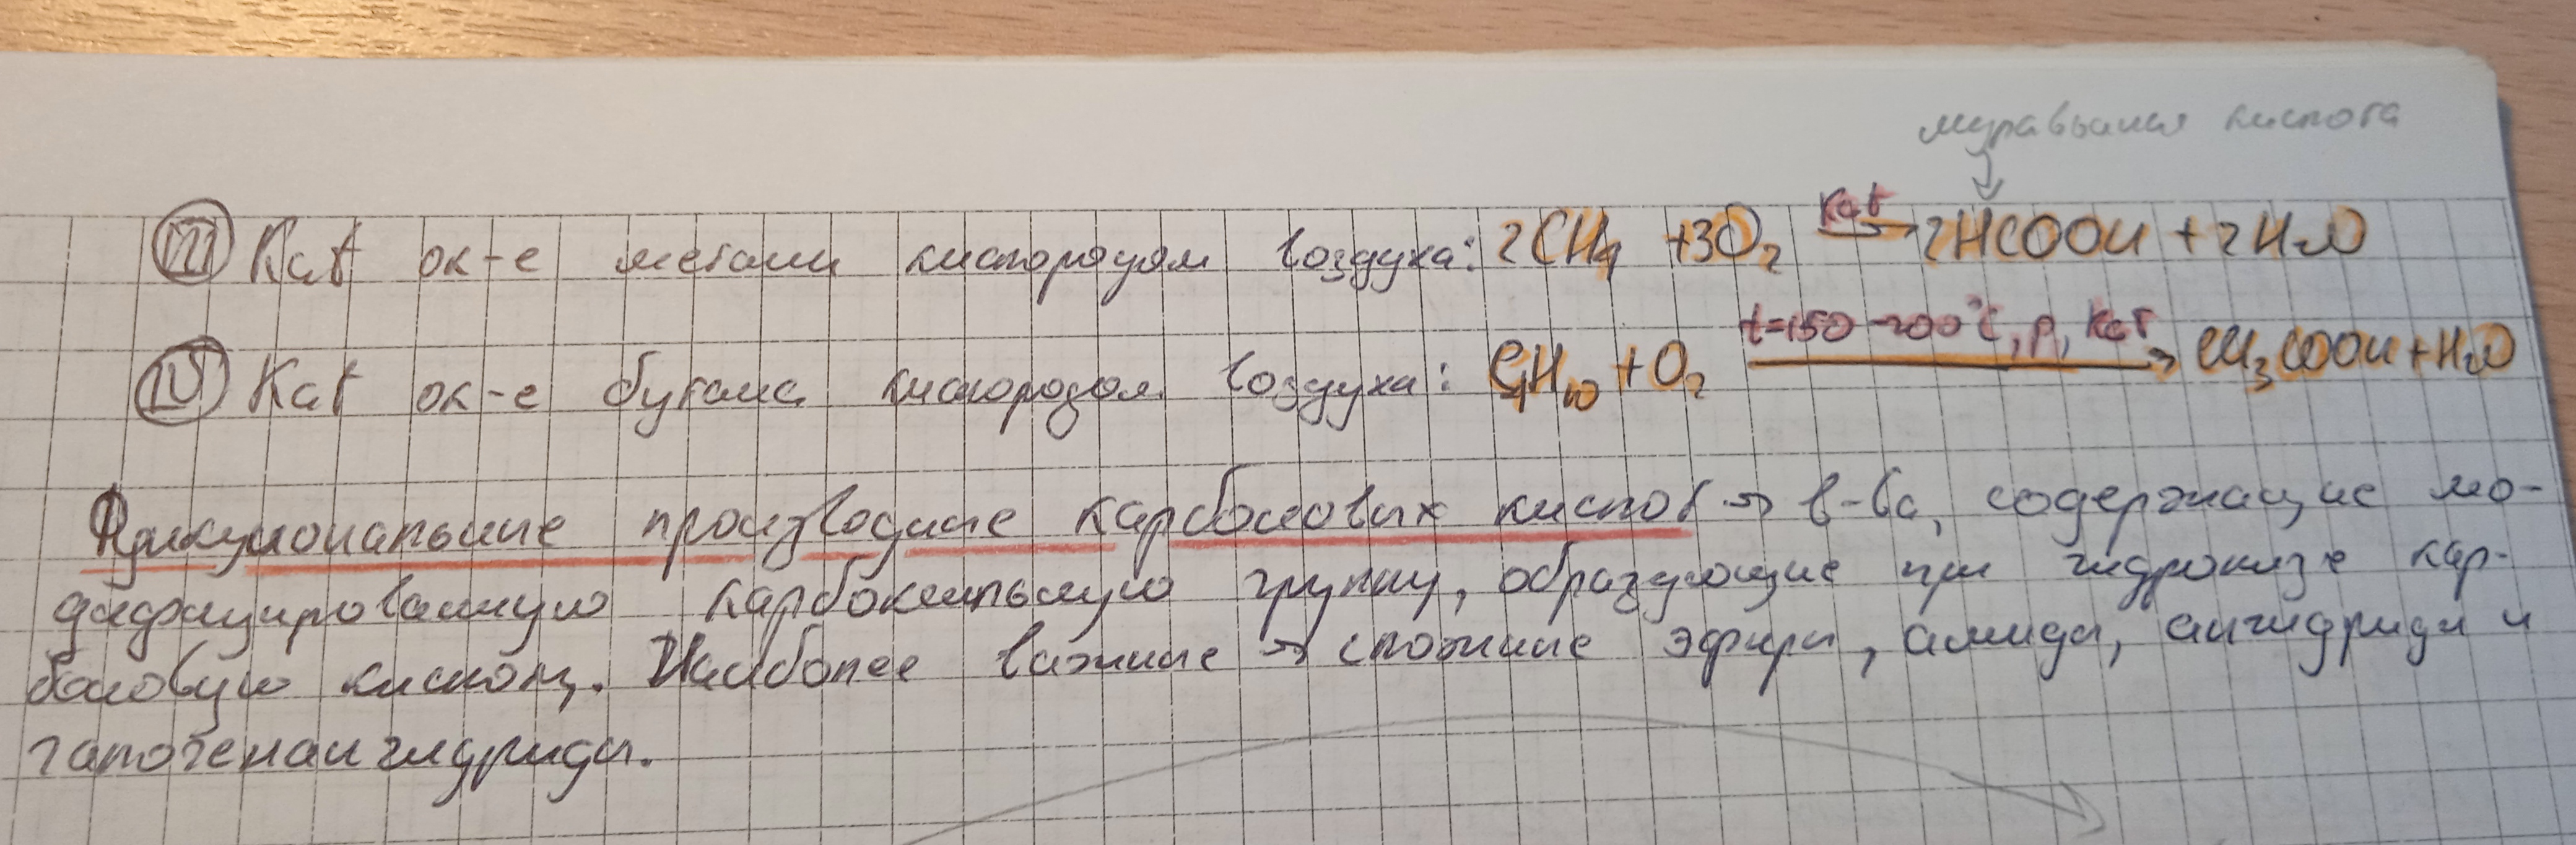 муравьиная кислота
III Kat ок-е метана кислородом воздуха: 2CH4 +3O2 Kat → 2HCOOH + 2H2O
IV Kat ок-е бутана кислородом воздуха: C4H10 + O2 t=150-200°C, p, Kat → CH3COOH + H2O
Функциональные производные карбоновых кислот → в-ва, содержащие мо-
дифицированную карбоксильную группу, образующие при гидролизе кар-
боновую кислоту. Наиболее важные → сложные эфиры, амиды, ангидриды и
галогенангидриды.